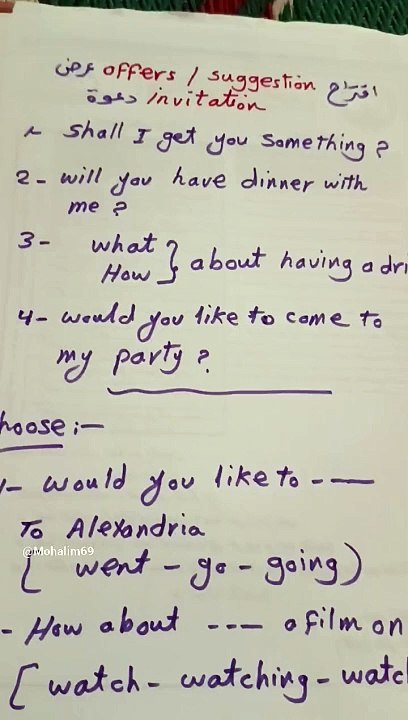 عرض offers / suggestion اقتراح
دعوة invitation
1- Shall I get you something ?
2- will you have dinner with
me ?
3- what
How } about having a dri
4- would you like to come to
my party ?
hoose :-
1- would you like to ---
To Alexandria
@Mohalim69
( went - go - going )
- How about --- a film on
( watch - watching - watch